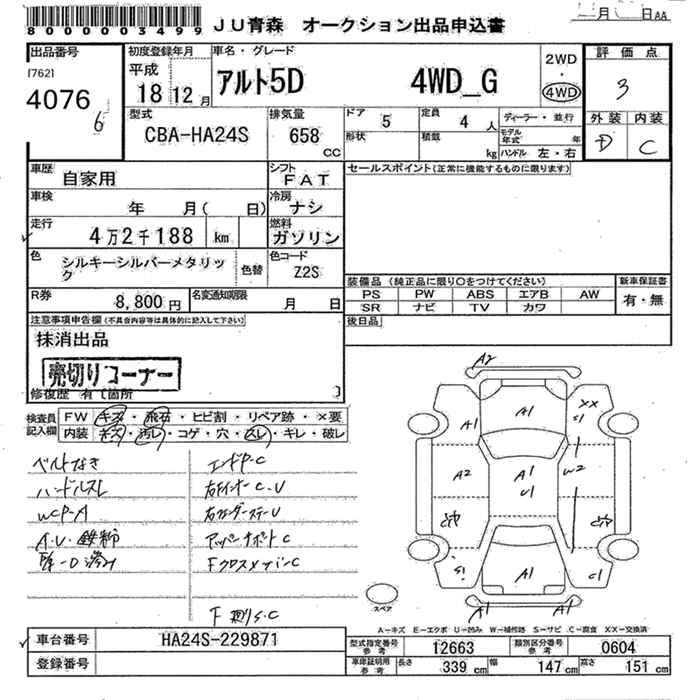 8000003499 JU青森 オークション出品申込書
月 日 AA
出品番号 初度登録年月 車名・グレード 2WD 評価点
17621 平成 アルト5D 4WD_G ・ 3
4076 18 12月 4WD
6 型式 排気量 ドア 5 定員 4人 ディーラー・並行 外装 内装
CBA-HA24S 658 CC 形状 積載 kg モデル年式 年 D C
ハンドル 左・右
車歴 自家用 シフト FAT セールスポイント(正常に機能するものに限ります)
車検 年 月( 日) 冷房 ナシ
走行 4万2千188 km 燃料 ガソリン
色 シルキーシルバーメタリック 色替 色コード Z2S
装備品(純正品に限り○をつけてください) 新車保証書
PS PW ABS エアB AW 有・無
SR ナビ TV カワ
R券 8,800円 名変通知期限 月 日
後日品
注意事項申告欄(不具合内容等は具体的に記入して下さい)
抹消出品
売切りコーナー
修復歴 有〔箇所 〕
検査員記入欄 FW キズ・飛石・ヒビ割・リペア跡・×要
内装 キズ・汚レ・コゲ・穴・凹レ・キレ・破レ
ベルトなき エンドP-C
ハンドルスレ 右インナーC-U
WCP-A
A2
A1
A1
XX
S1
A2
A1
U1
W2
S1
A1
C1
A1
A1
スペア
A-キズ E-エクボ U-凹み W-補修跡 S-サビ C-腐食 XX-交換済
車台番号 HA24S-229871 型式指定番号 参考 12663 類別区分番号 参考 0604
登録番号 車庫証明用 参考 長さ 339cm 幅 147cm 高さ 151cm